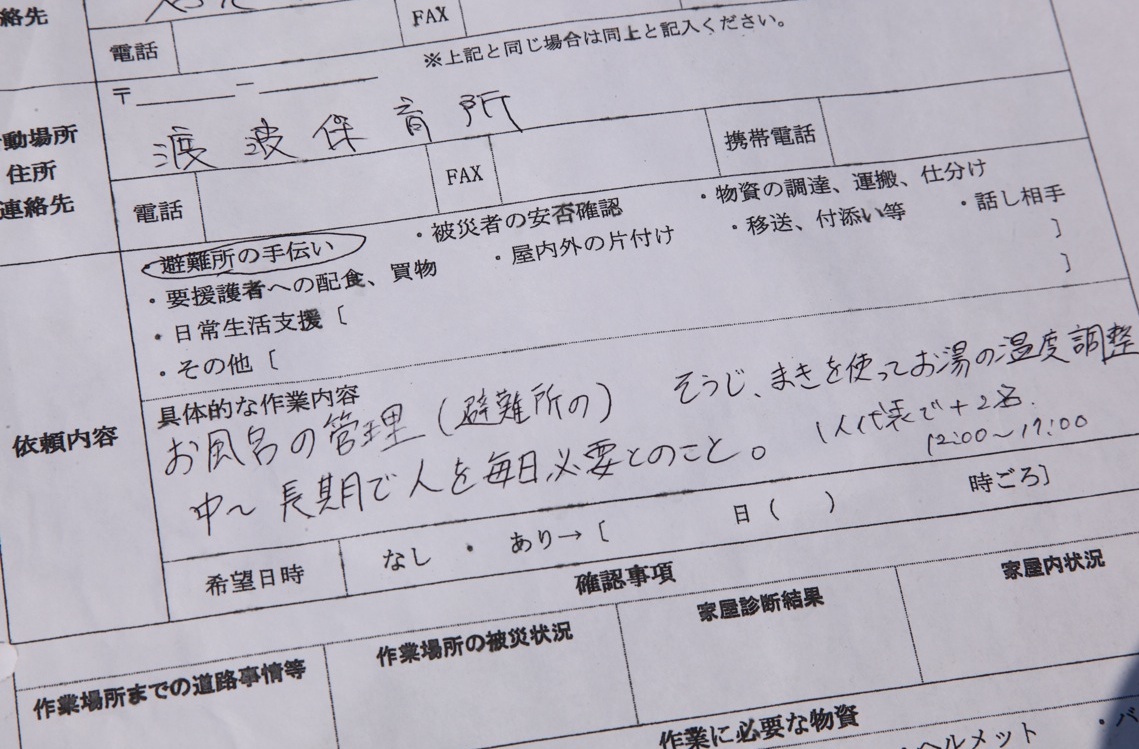 絡先
電話
FAX
※上記と同じ場合は同上と記入ください。
動場所
住所
連絡先
〒 ー
渡波保育所
電話
FAX
携帯電話
依頼内容
・避難所の手伝い ・被災者の安否確認 ・物資の調達、運搬、仕分け
・要援護者への配食、買物 ・屋内外の片付け ・移送、付添い等 ・話し相手
・日常生活支援 [ ]
・その他 [ ]
具体的な作業内容
お風呂の管理(避難所の) そうじ、まきを使ってお湯の温度調整
中〜長期で人を毎日必要とのこと。 1人代表で+2名
12:00〜17:00
希望日時
なし ・ あり→ [ 日( ) 時ごろ]
確認事項
作業場所までの道路事情等
作業場所の被災状況
家屋診断結果
家屋内状況
作業に必要な物資
ヘルメット ・バ